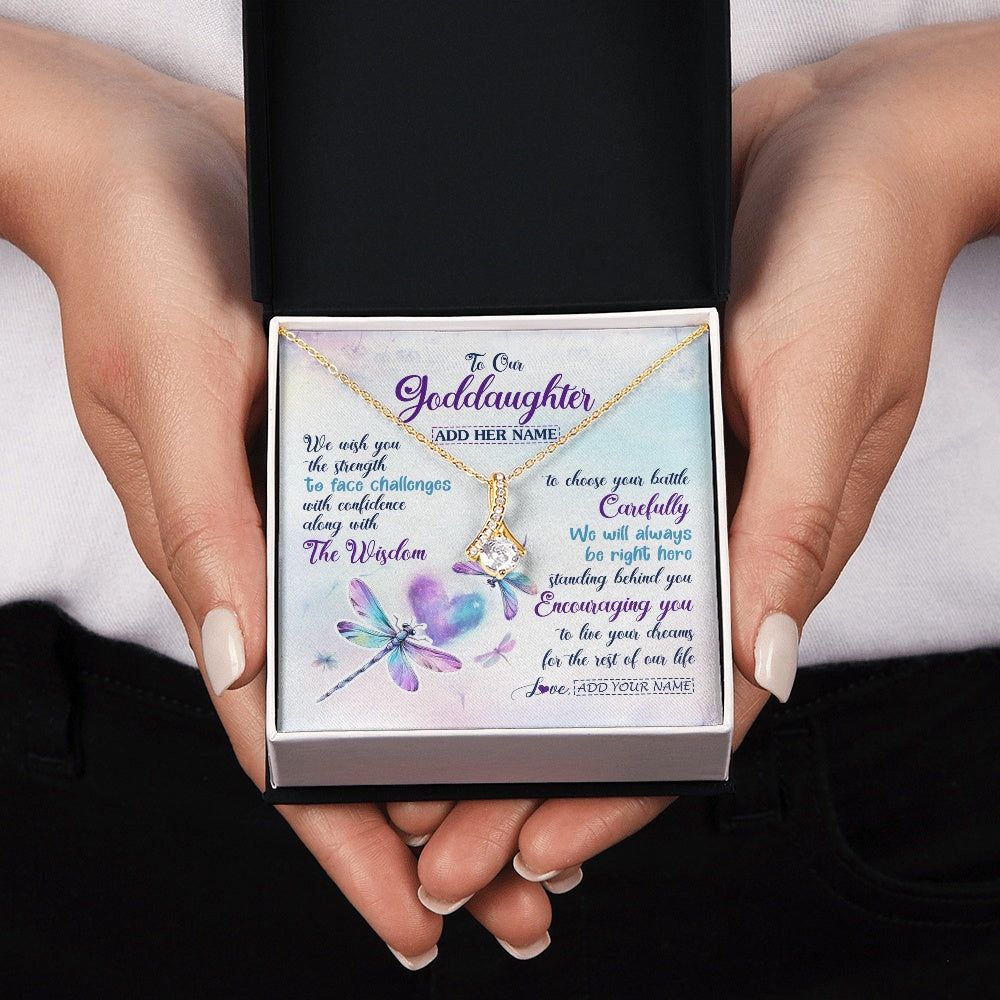 To Our
Goddaughter
ADD HER NAME
We wish you
the strength
to face challenges
with confidence
along with
The Wisdom
to choose your battle
Carefully
We will always
be right here
standing behind you
Encouraging you
to live your dreams
for the rest of our life
Love, ADD YOUR NAME